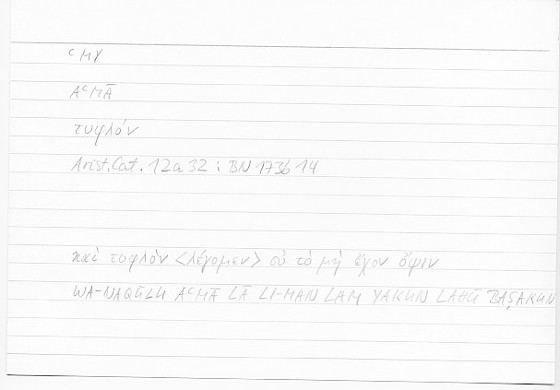 ᶜMY
AᶜMĀ
τυφλόν
Arist. Cat. 12a32 : BN 173b14
καὶ τυφλὸν <λέγομεν> οὐ τὸ μὴ ἔχον ὄψιν
WA-NAQŪLU AᶜMĀ LĀ LI-MAN LAM YAKUN LAHŪ BAṢARUN